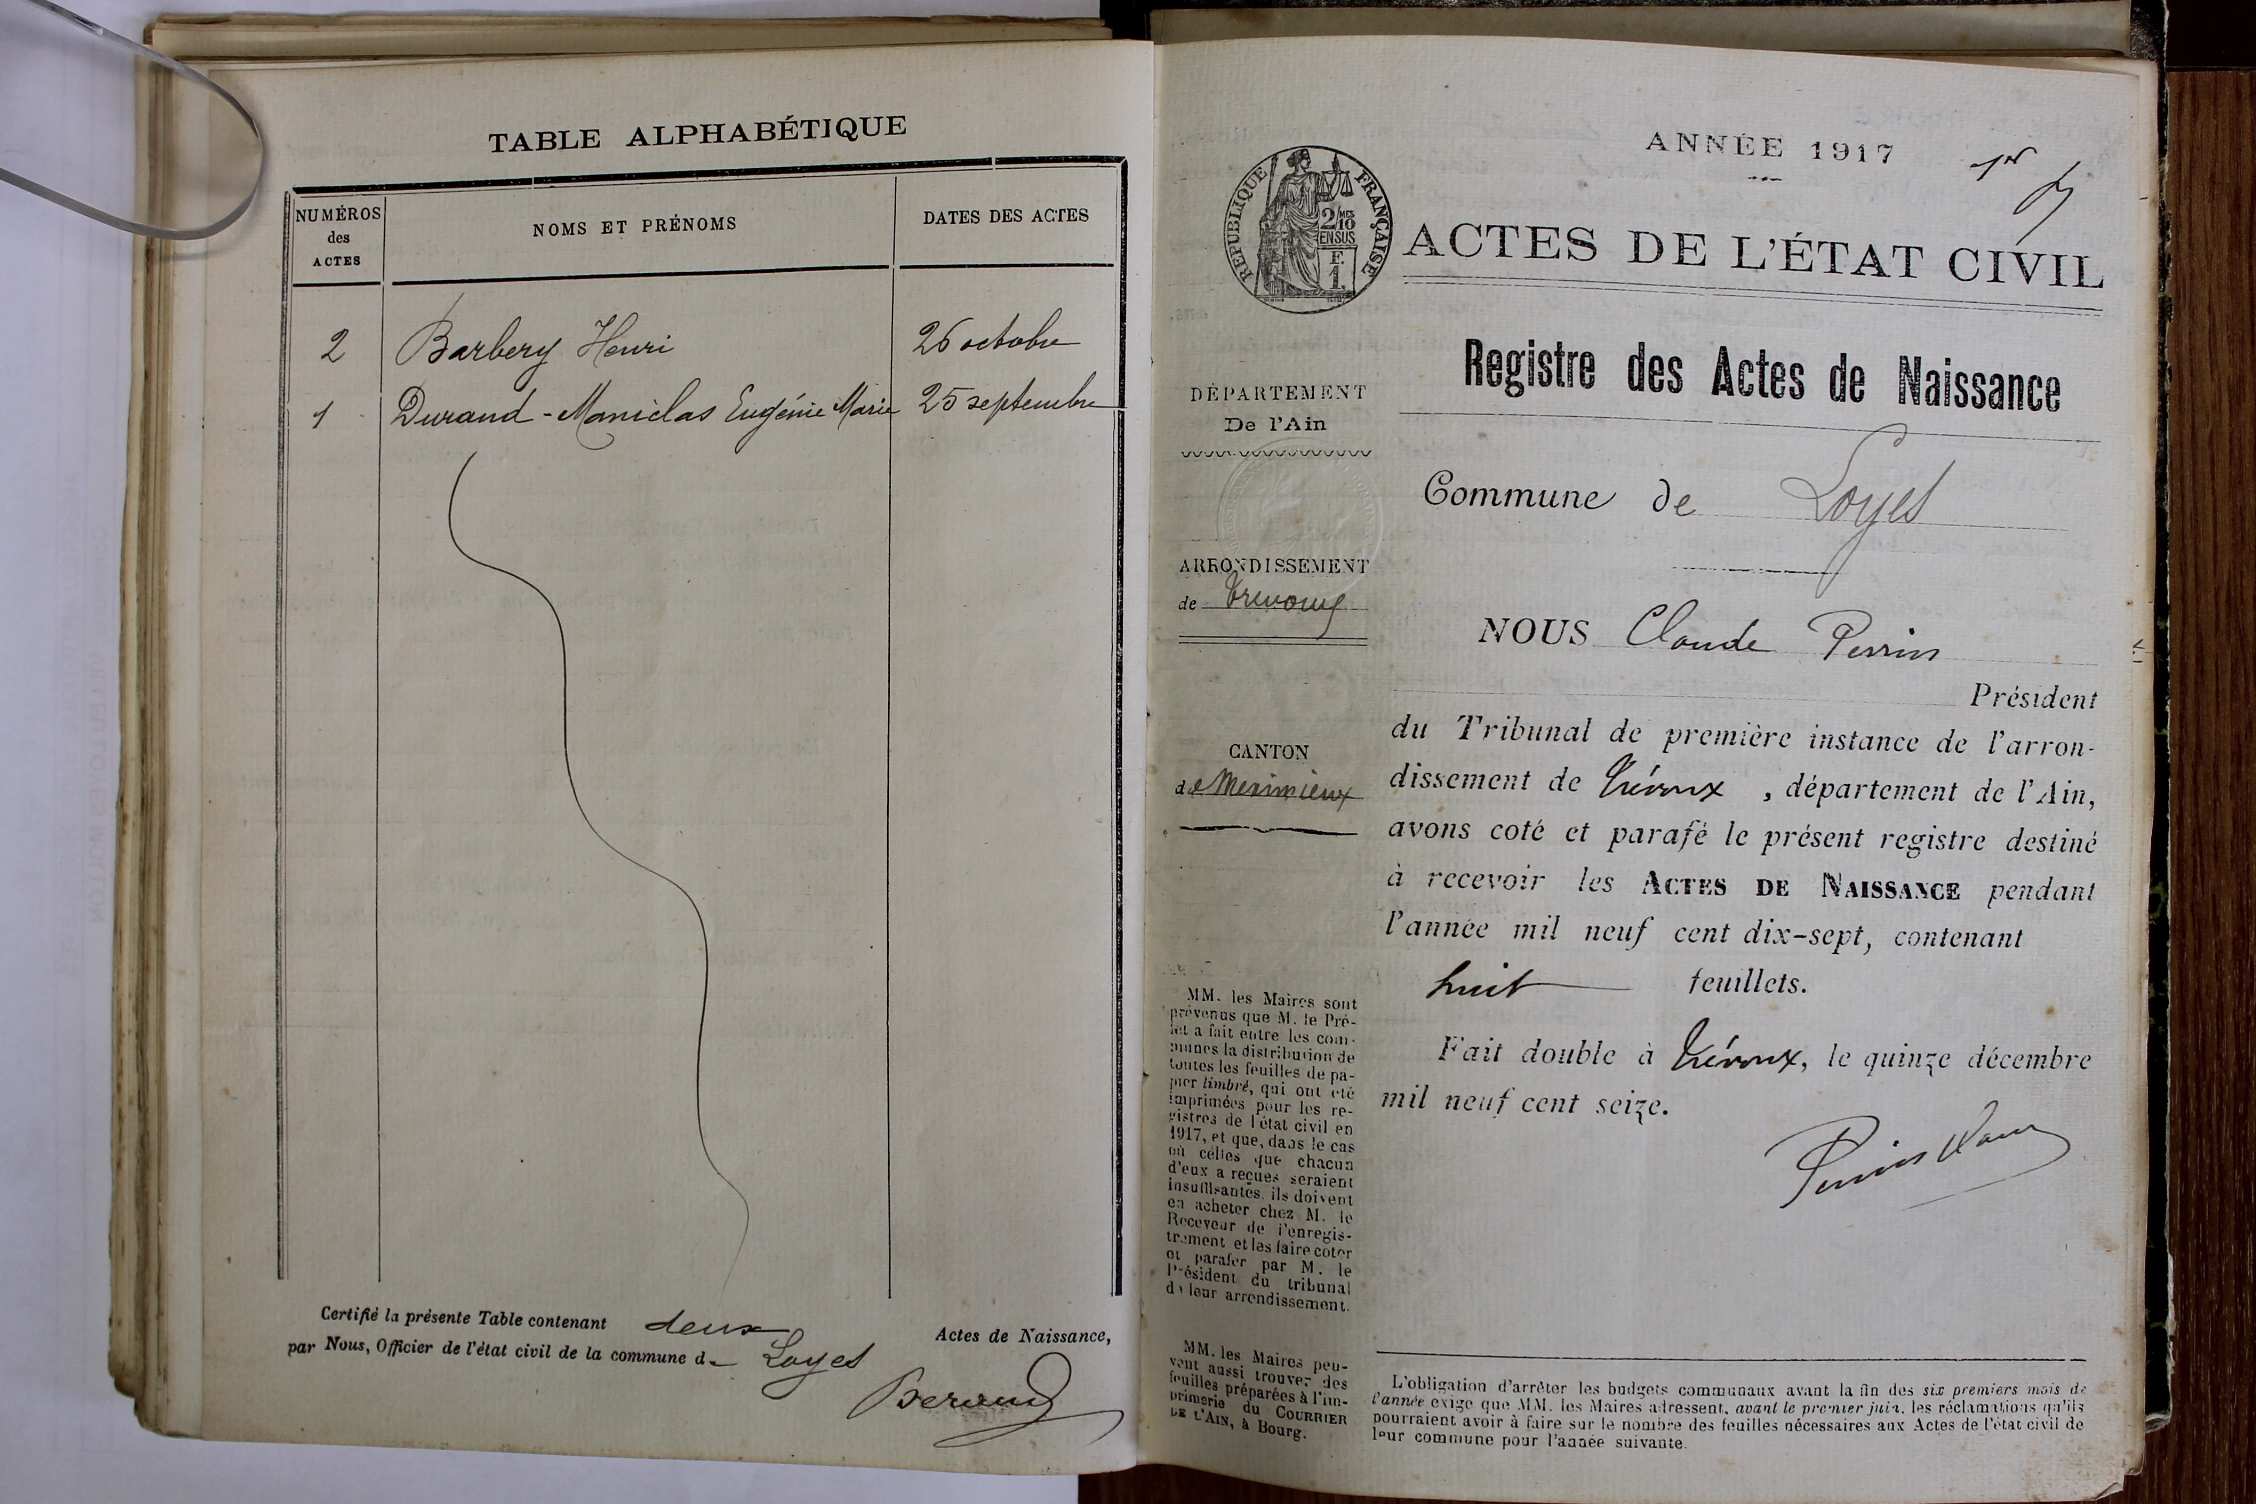 TABLE ALPHABÉTIQUE
NUMÉROS
des
ACTES
NOMS ET PRÉNOMS
DATES DES ACTES
2 Barbery Henri 26 octobre
1 Durand-Maniclas Eugénie Marie 25 septembre
Certifié la présente Table contenant deux Actes de Naissance,
par Nous, Officier de l'état civil de la commune de Loyes
ANNÉE 1917
1er
RÉPUBLIQUE FRANÇAISE
2/10 MES
EN SUS
F.
1.
ACTES DE L'ÉTAT CIVIL
Registre des Actes de Naissance
DÉPARTEMENT
De l'Ain
Commune de Loyes
ARRONDISSEMENT
de Trévoux
CANTON
de Meximieux
NOUS Claude Perrin
Président
du Tribunal de première instance de l'arron-
dissement de Trévoux, département de l'Ain,
avons coté et parafé le présent registre destiné
à recevoir les ACTES DE NAISSANCE pendant
l'année mil neuf cent dix-sept, contenant
huit feuillets.
Fait double à Trévoux, le quinze décembre
mil neuf cent seize.
MM. les Maires sont
prévenus que M. le Pré-
fet a fait entre les com-
munes la distribution de
toutes les feuilles de pa-
pier timbré, qui ont été
imprimées pour les re-
gistres de l'état civil en
1917, et que, dans le cas
où celles que chacun
d'eux a reçues seraient
insuffisantes, ils doivent
en acheter chez M. le
Receveur de l'enregis-
trement et les faire coter
et parafer par M. le
Président du tribunal
de leur arrondissement.
MM. les Maires peu-
vent aussi trouver des
feuilles préparées à l'im-
primerie du COURRIER
DE L'AIN, à Bourg.
L'obligation d'arrêter les budgets communaux avant la fin des six premiers mois de
l'année exige que MM. les Maires adressent, avant le premier juin, les réclamations qu'ils
pourraient avoir à faire sur le nombre des feuilles nécessaires aux Actes de l'état civil de
leur commune pour l'année suivante.